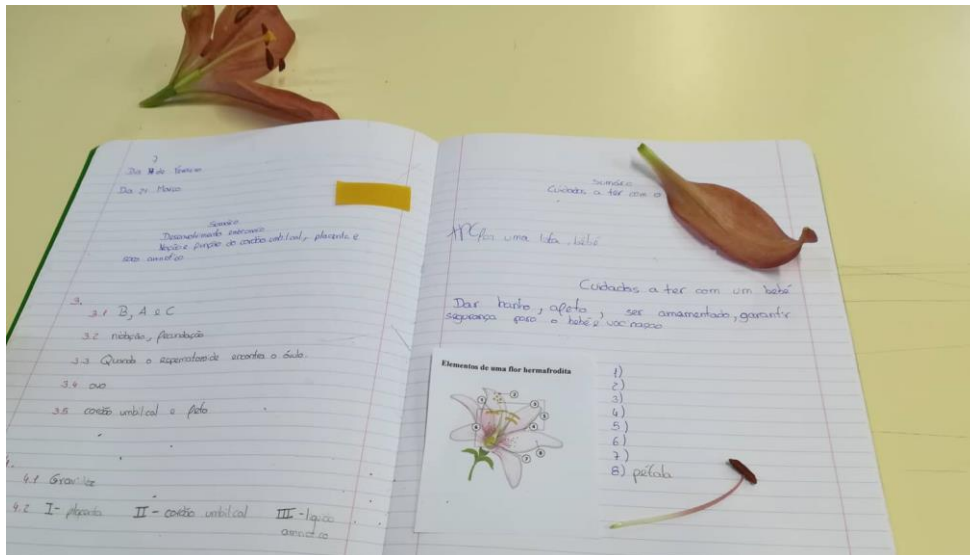 Dia 21 Março
Sumário
Desenvolvimento embrionário
Noção e função do cordão umbilical, placenta e
saco amniótico
3.
3.1 B, A e C
3.2 nidação, fecundação
3.3 Quando o espermatozoide encontra o óvulo.
3.4 ovo
3.5 cordão umbilical e feto
4.1 Gravidez
4.2 I- placenta II - cordão umbilical III - líquido
amniótico
Sumário
Cuidados a ter com o
uma bebé
Cuidados a ter com um bebé
Dar banho, afeto, ser amamentado, garantir
segurança para o bebé e vacinação
Elementos de uma flor hermafrodita
1)
2)
3)
4)
5)
6)
7)
8) pétala